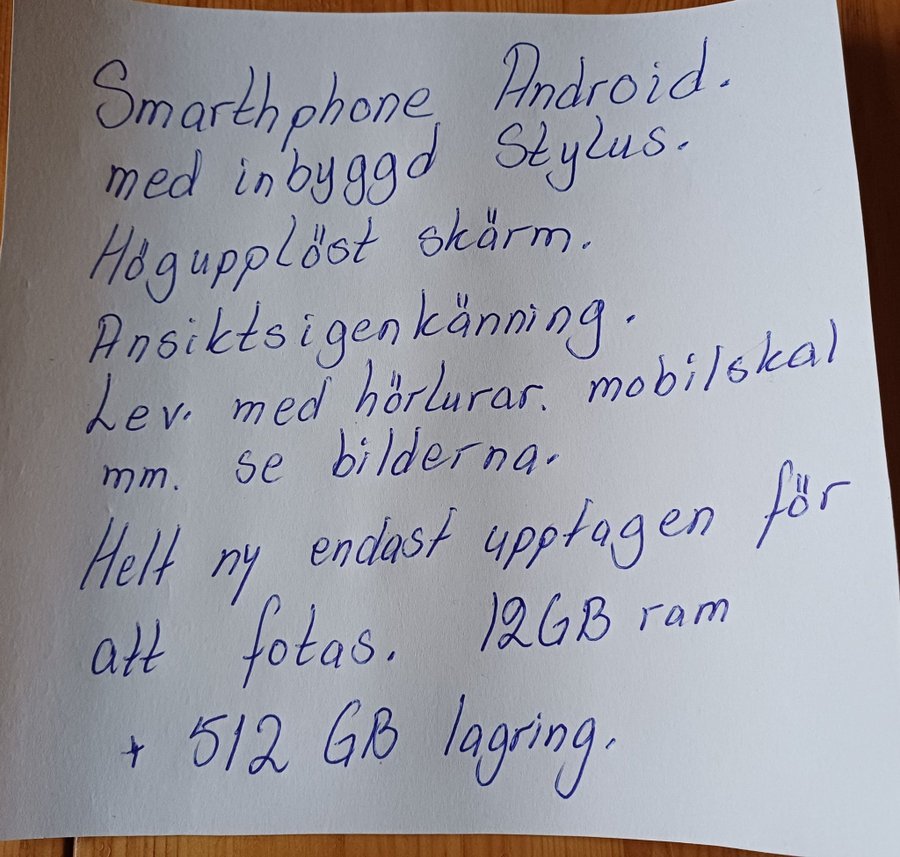 Smarthphone Android.
med inbyggd Stylus.
Högupplöst skärm.
Ansiktsigenkänning.
Lev. med hörlurar. mobilskal
mm. se bilderna.
Helt ny endast upptagen för
att fotas. 12GB ram
+ 512 GB lagring.